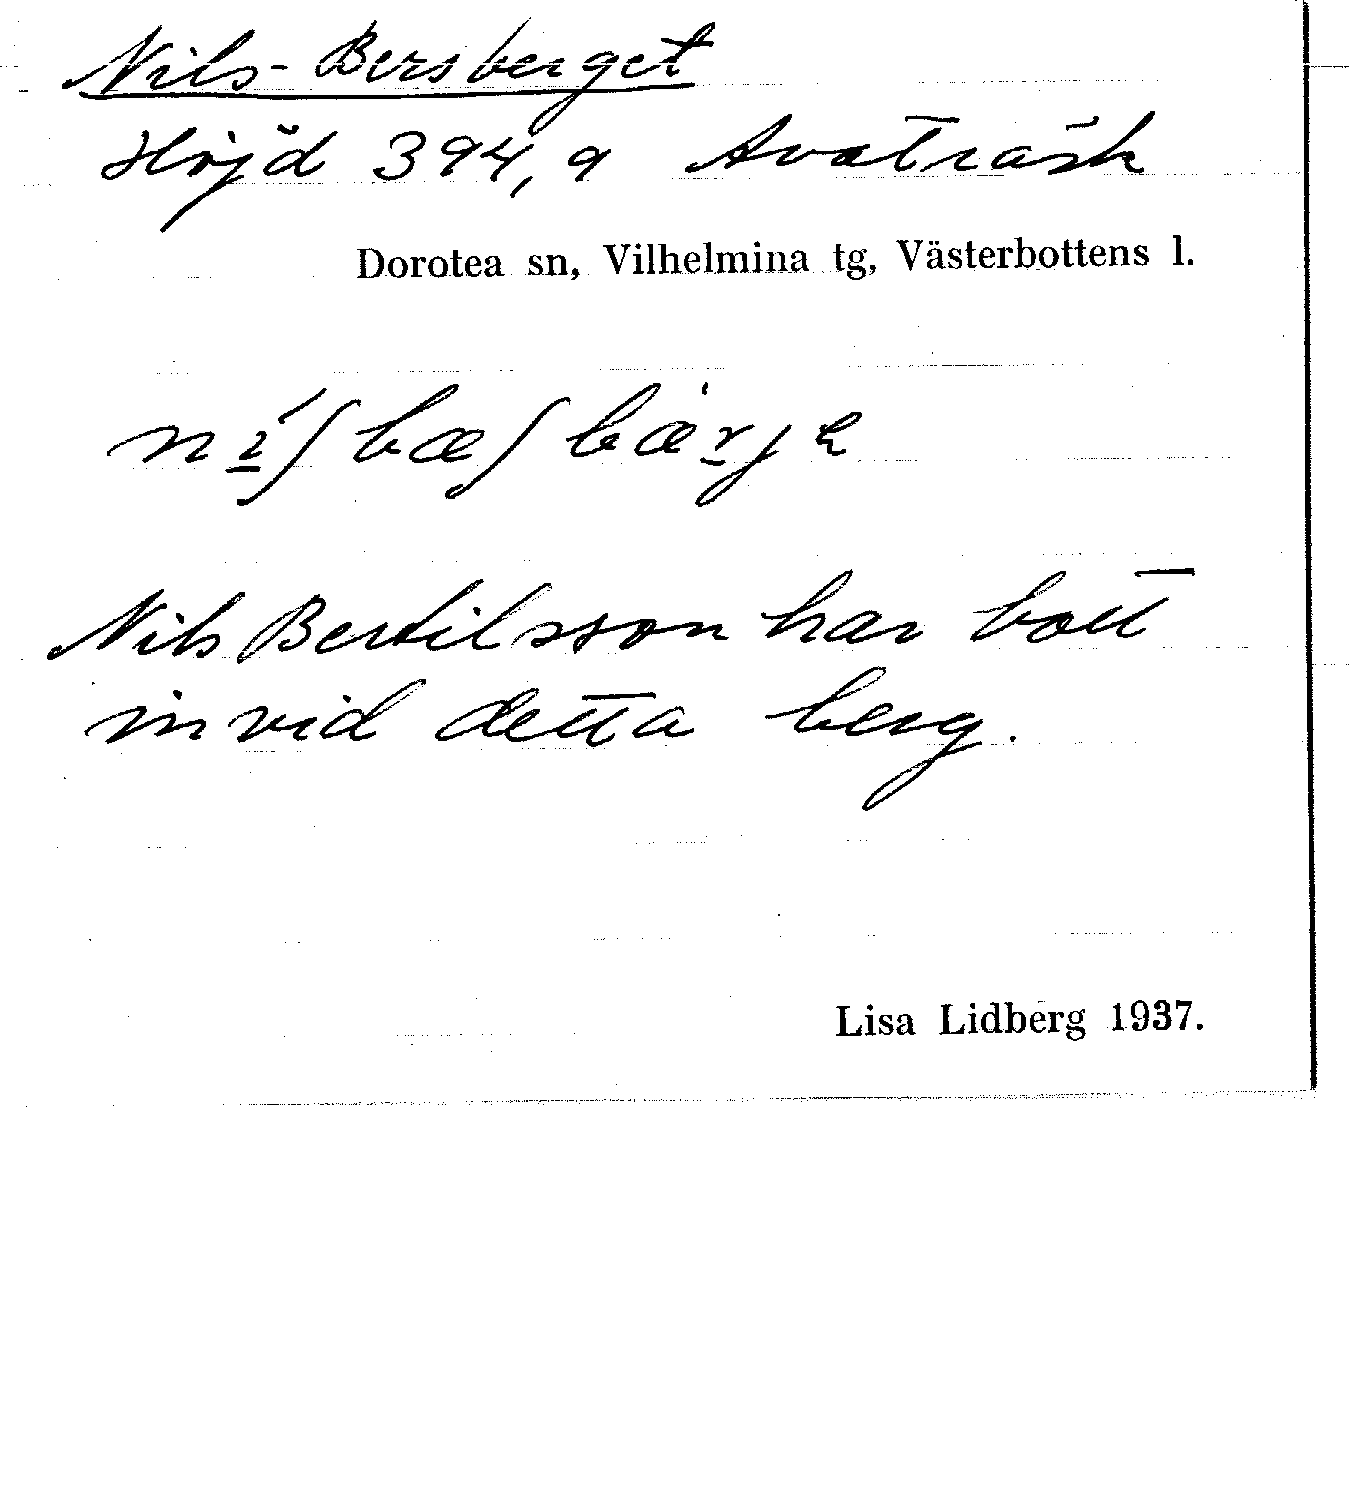 Nils-Bersberget
Höjd 394,9 Avaträsk
Dorotea sn, Vilhelmina tg, Västerbottens l.
Nils Bertilsson har bott
invid detta berg.
Lisa Lidberg 1937.